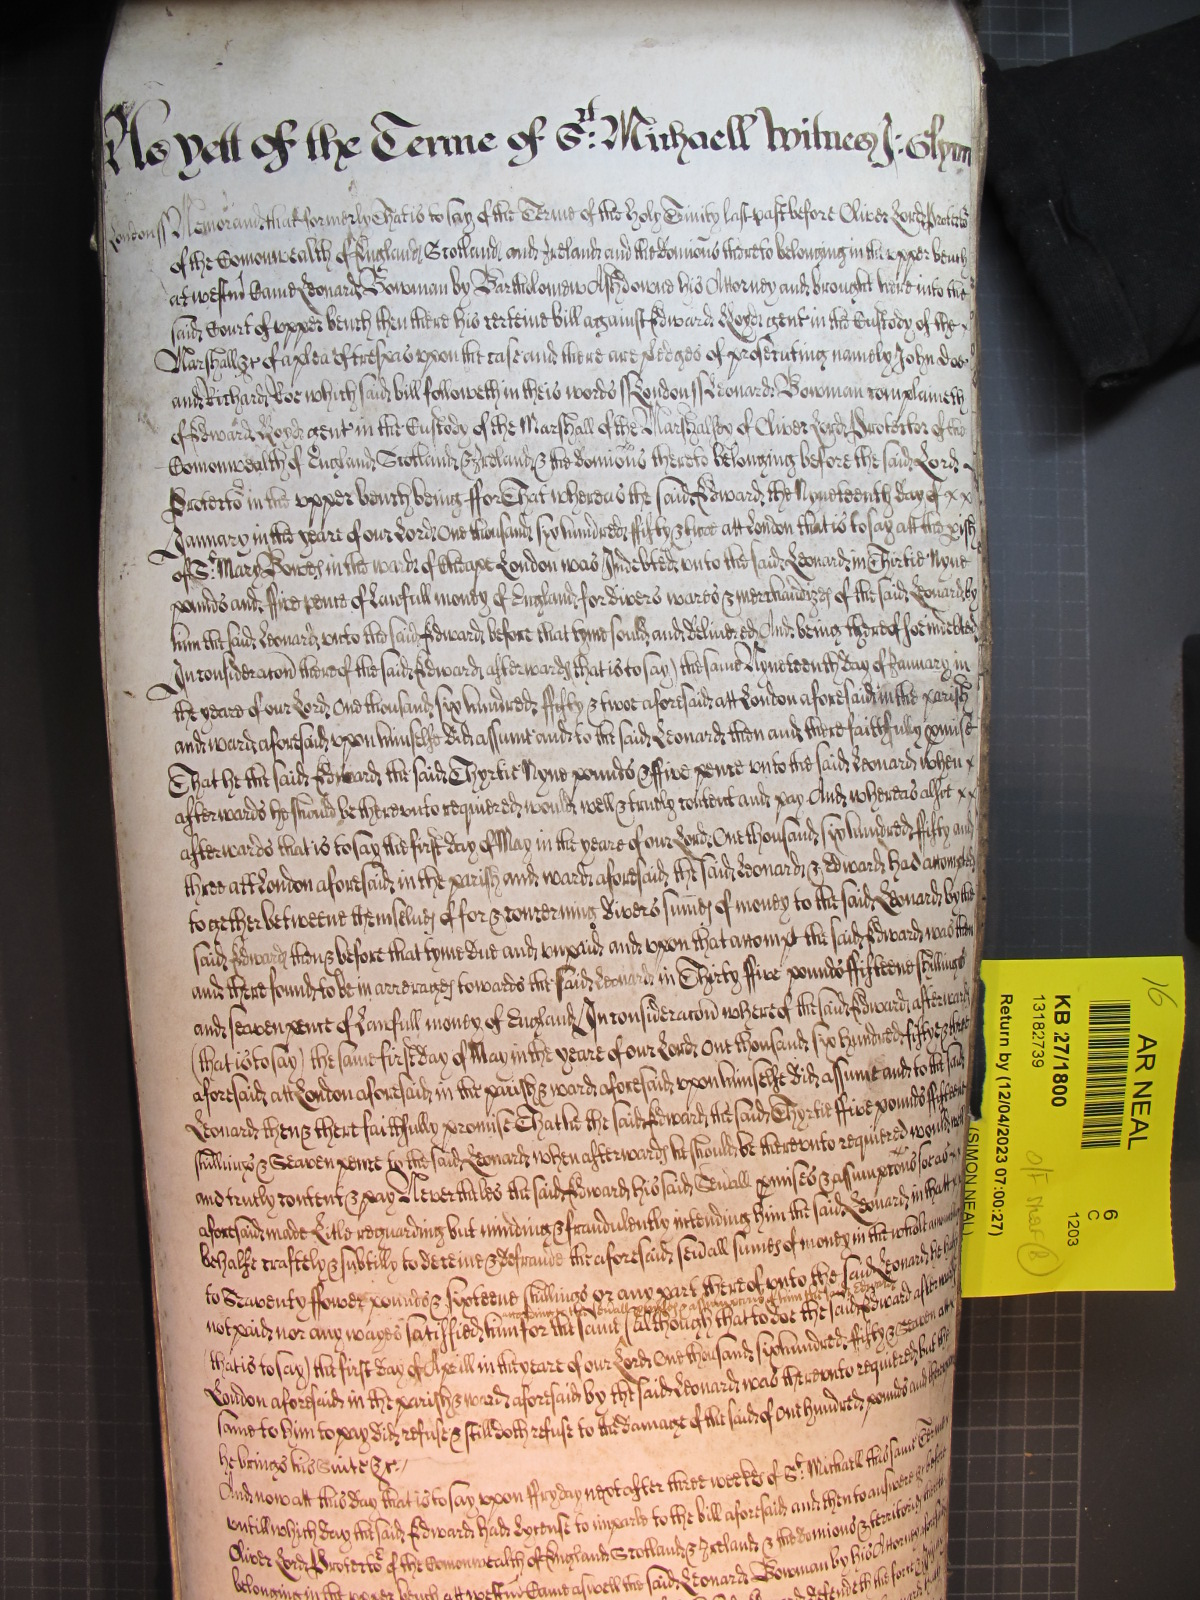 As yett of the Terme of St: Michaell Witnes J: Glynn
London ss Memorand that formerly That is to say of the Terme of the holy Trinity last past before Oliver Lord Protector
of the Comonwealth of England Scotland and Ireland and the dominions thereto belonging in the upper bench
at westm Came Leonard Bowman by Bartholomew Ashdowne his Attorney and brought here into the
said Court of upper bench then there his certeine bill against Edward gent in the Custody of the x
Marshall &c of a plea of trespas upon the case and there are pledges of prosecuting namely John doe
and Richard Roe which said bill followeth in theis words ss London ss Leonard Bowman complaineth
of Edward gent in the Custody of the Marshall of the Marshalsey of Oliver Lord Protector of the
Comonwealth of England Scotland & Ireland & the dominions thereto belonging before the said Lord
Protector in the upper bench being ffor That whereas the said Edward the Nyneteenth day of x x
January in the yeare of our Lord One thousand six hundred fifty & twoe att London that is to say att the pish
of St Mary Bowe in the ward of Cheape London was Indebted unto the said Leonard in Thirtie Nyne
pounds and ffive pence of Lawfull money of England for divers wares & merchandizes of the said Leonard by
him the said Leonard unto the said Edward before that tyme sould and delivered And being thereof soe indebted
In consideracon thereof the said Edward afterwards that is to say) the same Nyneteenth day of January in
the yeare of our Lord One thousand six hundred ffifty & twoe aforesaid att London aforesaid in the parish
and ward aforesaid upon himselfe did assume and to the said Leonard then and there faithfully pmise
That he the said Edward the said Thyrtie Nyne pounds & ffive pence unto the said Leonard when x
afterwards he should be thereunto required would well & truely content and pay And whereas alsoe x x
afterwards that is to say the first day of May in the yeare of our Lord One thousand six hundred ffifty and
three att London aforesaid in the parish and ward aforesaid the said Leonard & Edward had accompted
together betweene themselues of for & concerning divers summes of money to the said Leonard by the
said Edward then & before that tyme due and unpaid and upon that accompt the said Edward was then
and there found to be in arrerages towards the said Leonard in Thirty ffive pounds ffifteene shillings
and seaven pence of Lawfull money of England In consideracon whereof the said Edward afterwards
(that is to say) the same first day of May in the yeare of our Lord One thousand six hundred fiftye & three
aforesaid att London aforesaid in the parish & ward aforesaid upon himselfe did assume and to the said
Leonard then & there faithfully promise That he the said Edward the said Thyrtie ffive pounds ffifteene
shillings & Seaven pence to the said Leonard when afterwards he should be thereunto required would well
and truely content & pay Nevertheles the said Edward his said Seuall pmises & assumptions soe as x
aforesaid made Litle reguarding but minding & fraudulently intending him the said Leonard in that
behalfe craftely & subtilly to deceive & defraude the aforesaid seuall summes of money in the whole amounting
to Seaventy ffower pounds & sixteene shillings or any part thereof unto the said Leonard he hath
according to the seuall pmises & assumptions of him the said Edward
not paid nor any wayes satisfied him for the same (although that to doe the said Edward afterwards
(that is to say) the first day of Aprill in the yeare of our Lord One thousand six hundred fifty & Seaven att
London aforesaid in the parish & ward aforesaid by the said Leonard was thereunto required but the
same to him to pay did refuse & still doth refuse to the damage of the said of One hundred pounds and thereupon
he brings his suite &c
And now att this day that is to say upon ffryday next after three weekes of St Michaell this same Terme
untill which day the said Edward had Lycense to imparle to the bill aforesaid and then to answere &c before
Oliver Lord Protector of the Comonwealth of England Scotland & Ireland & the dominions & territories thereto
belonging in the upper bench att westm Came aswell the said Leonard Bowman by his Attorney aforesaid
defendeth the force
16
AR NEAL
KB 27/1800
13182739
Return by (12/04/2023 07:00:27)
(SIMON NEAL)
6
C
1203